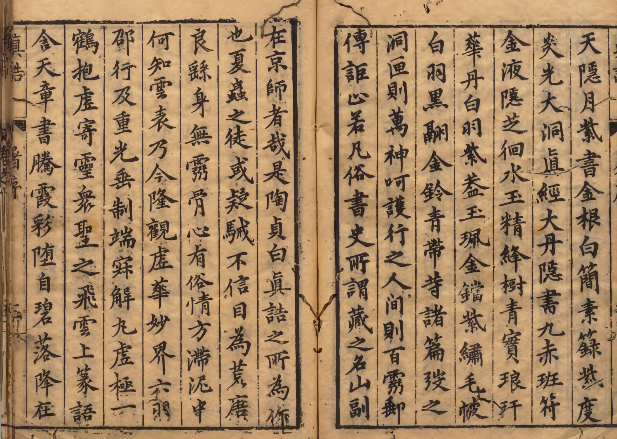 天隱月紫書金根白簡素籙紫度
炎光大洞真經大丹隱書九赤班符
金液隱芝徊水玉精絳樹青實琅玕
華丹白羽紫蓋玉珮金鐺紫繡毛帔
白羽黑翮金鈴青帶苛諸篇發之
洞匣則萬神呵護行之人間則百靈郵
傳詎止若凡俗書史所謂藏之名山副
在京師者哉是陶貞白真誥之所為作
也夏蟲之徒或疑駴不信目為荒唐
良繇身無靈骨心有俗情方滯泥中
何知雲表乃今隆觀虛華妙界六羽
邵行及重光垂制端寀解九虛極一
鶴抱虛寄靈衆聖之飛雲上篆語
含天章書騰霞彩墮自碧落降在
真誥